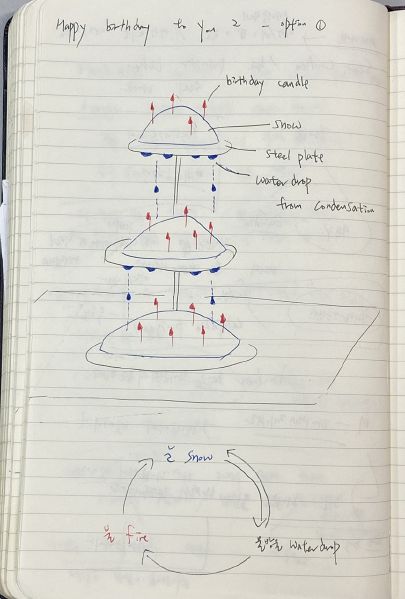 Happy birthday to you 2 - option ①
birthday candle
snow
steel plate
water drop
from condensation
눈 snow
불 fire
물방울 water drop